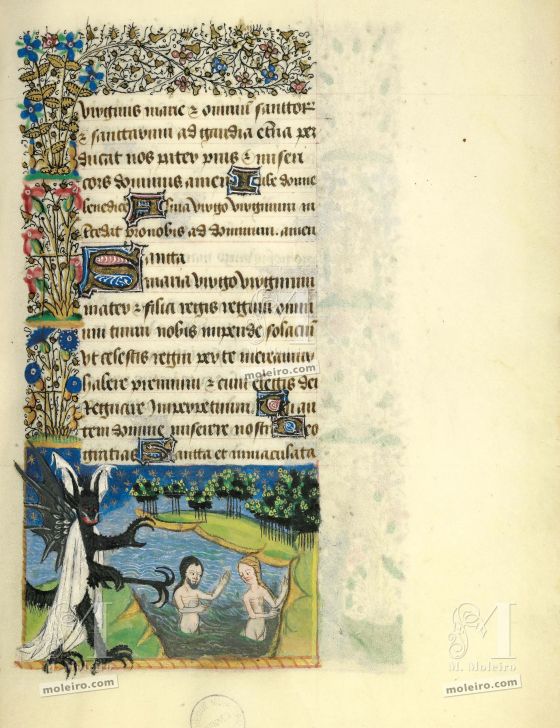 virginis marie & omniu sanctor
& sanctarum ad gaudia et̄na per
ducat nos pater pius & miseri
cors dominus amen Iube domne
benedice Alma virgo virginum in
tercedat pro nobis ad dominum. amen
Sancta
maria virgo virginum
mater & filia regis regum omni
um tuum nobis impende solaciu
ut celestis regni per te mereamur
habere premium & cum electis dei
Regnare Imperpetuum. Tu au
tem domine miserere nostri Deo
gratias Sancta et inmaculata
moleiro.com
M. Moleiro
M. Moleiro
moleiro.com
moleiro.com